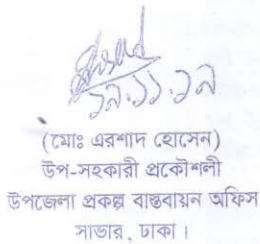 ১৯.১১.১৯
(মোঃ এরশাদ হোসেন)
উপ-সহকারী প্রকৌশলী
উপজেলা প্রকল্প বাস্তবায়ন অফিস
সাভার, ঢাকা।